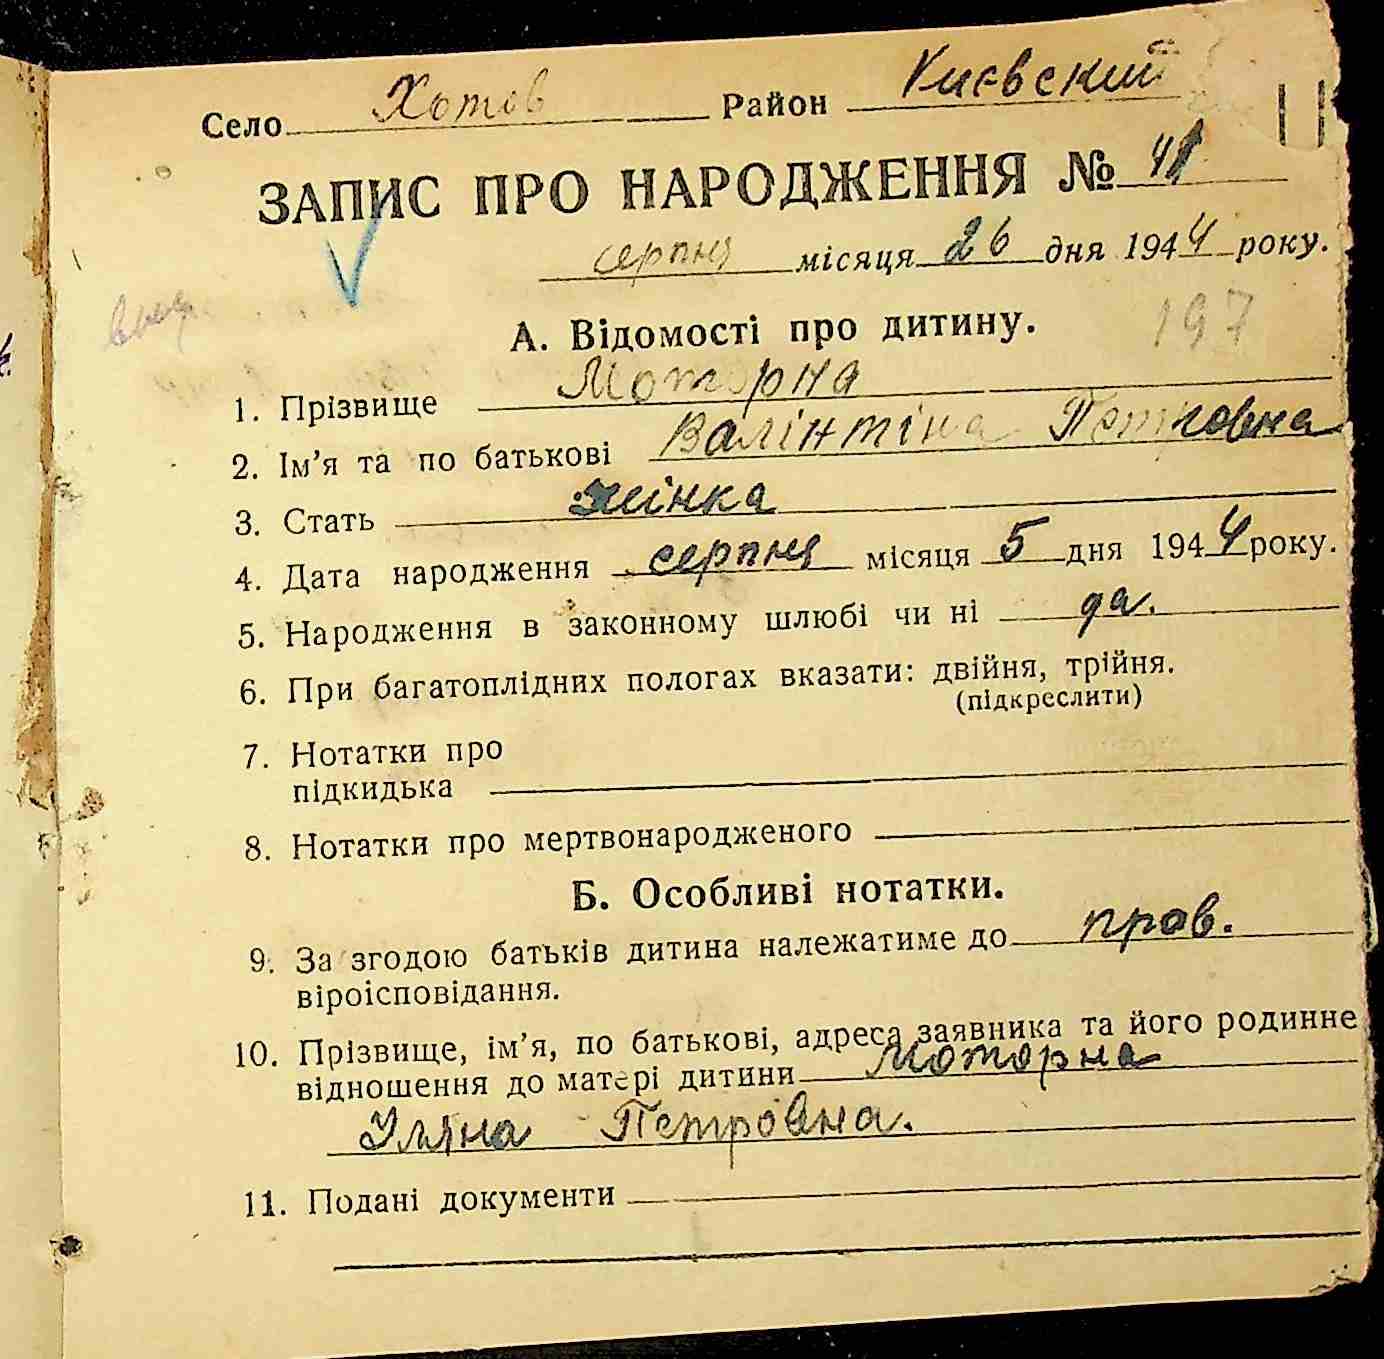 Село Хотов Район Києвский
ЗАПИС ПРО НАРОДЖЕННЯ № 41
серпня місяця 26 дня 1944 року.
А. Відомості про дитину. 197
1. Прізвище Моторна
2. Ім'я та по батькові Валінтіна Петровна
3. Стать жінка
4. Дата народження серпня місяця 5 дня 1944 року.
5. Народження в законному шлюбі чи ні да.
6. При багатоплідних пологах вказати: двійня, трійня.
(підкреслити)
7. Нотатки про
підкидька
8. Нотатки про мертвонародженого
Б. Особливі нотатки.
9. За згодою батьків дитина належатиме до прав.
віроісповідання.
10. Прізвище, ім'я, по батькові, адреса заявника та його родинне
відношення до матері дитини Моторна
Уляна Петровна.
11. Подані документи